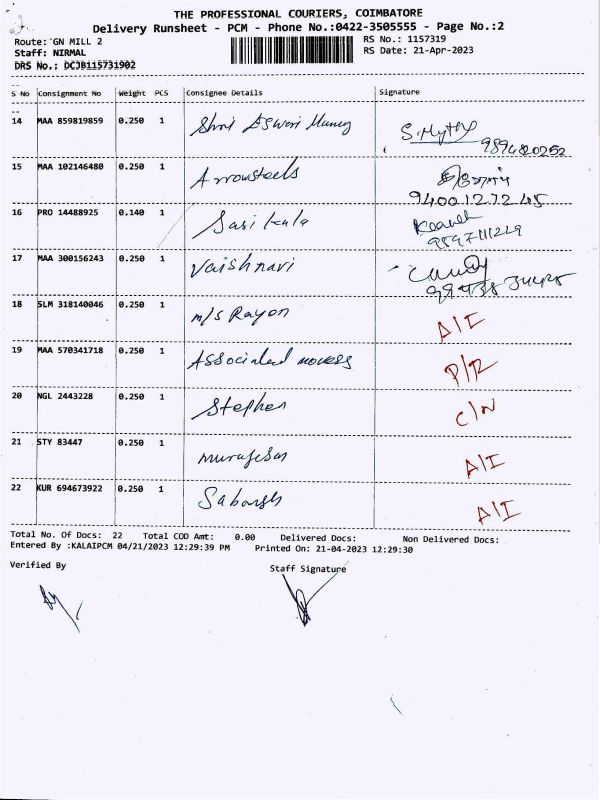 THE PROFESSIONAL COURIERS, COIMBATORE
Delivery Runsheet - PCM - Phone No.:0422-3505555 - Page No.:2
Route: GN MILL 2 RS No.: 1157319
Staff: NIRMAL RS Date: 21-Apr-2023
DRS No.: DCJB115731902
S No Consignment No Weight PCS Consignee Details Signature
14 MAA 859819859 0.250 1 Shri
15 MAA 102146480 0.250 1 Arrowsteels
9400127245
16 PRO 14488925 0.140 1 Sasikala
17 MAA 300156243 0.250 1 Vaishnavi
18 SLM 318140046 0.250 1 M/S Rayon A/I
19 MAA 570341718 0.250 1 Associated P/R
20 NGL 2443228 0.250 1 Stephen C/N
21 STY 83447 0.250 1 Murugesan A/I
22 KUR 694673922 0.250 1 A/I
Total No. Of Docs: 22 Total COD Amt: 0.00 Delivered Docs: Non Delivered Docs:
Entered By :KALAIPCM 04/21/2023 12:29:39 PM Printed On: 21-04-2023 12:29:30
Verified By Staff Signature